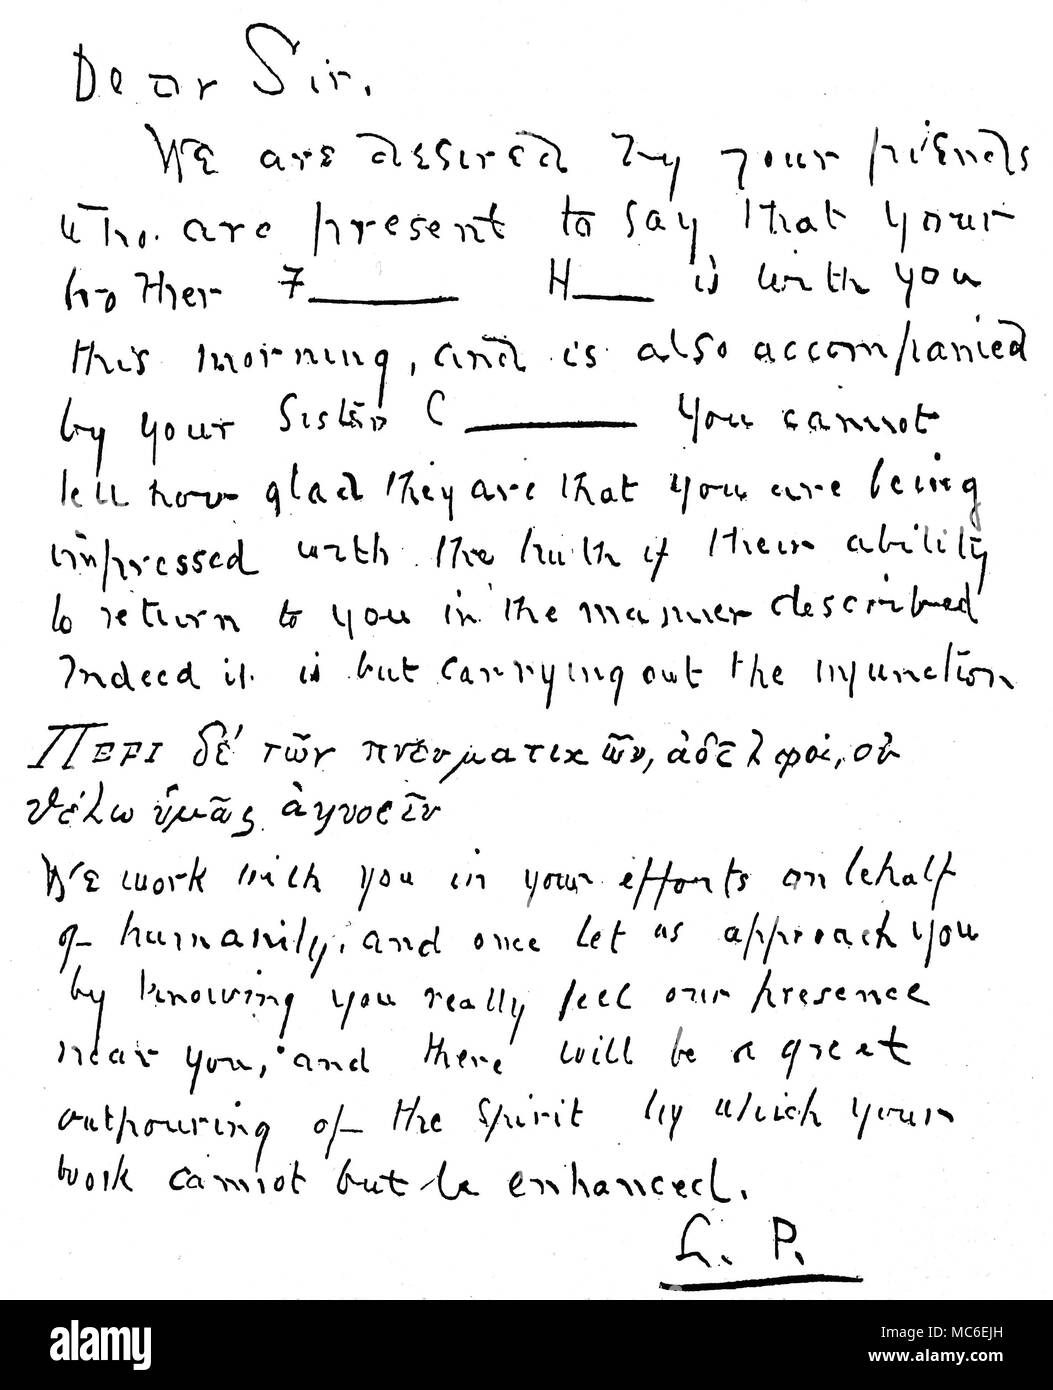 Dear Sir.
We are desired by your friends
who are present to say that your
brother F______ H____ is with you
this morning, and is also accompanied
by your Sister C________ You cannot
tell how glad they are that you are being
impressed with the truth of their ability
to return to you in the manner described
Indeed it is but carrying out the injunction
Περι δέ τῶν πνευματικῶν, ἀδελφοί, οὐ
θέλω ὑμᾶς ἀγνοεῖν
We work with you in your efforts on behalf
of humanity, and once let us approach you
by knowing you really feel our presence
near you, and there will be a great
outpouring of the spirit by which your
work cannot but be enhanced.
G. P.
alamy
Image ID: MC6EJH
www.alamy.com